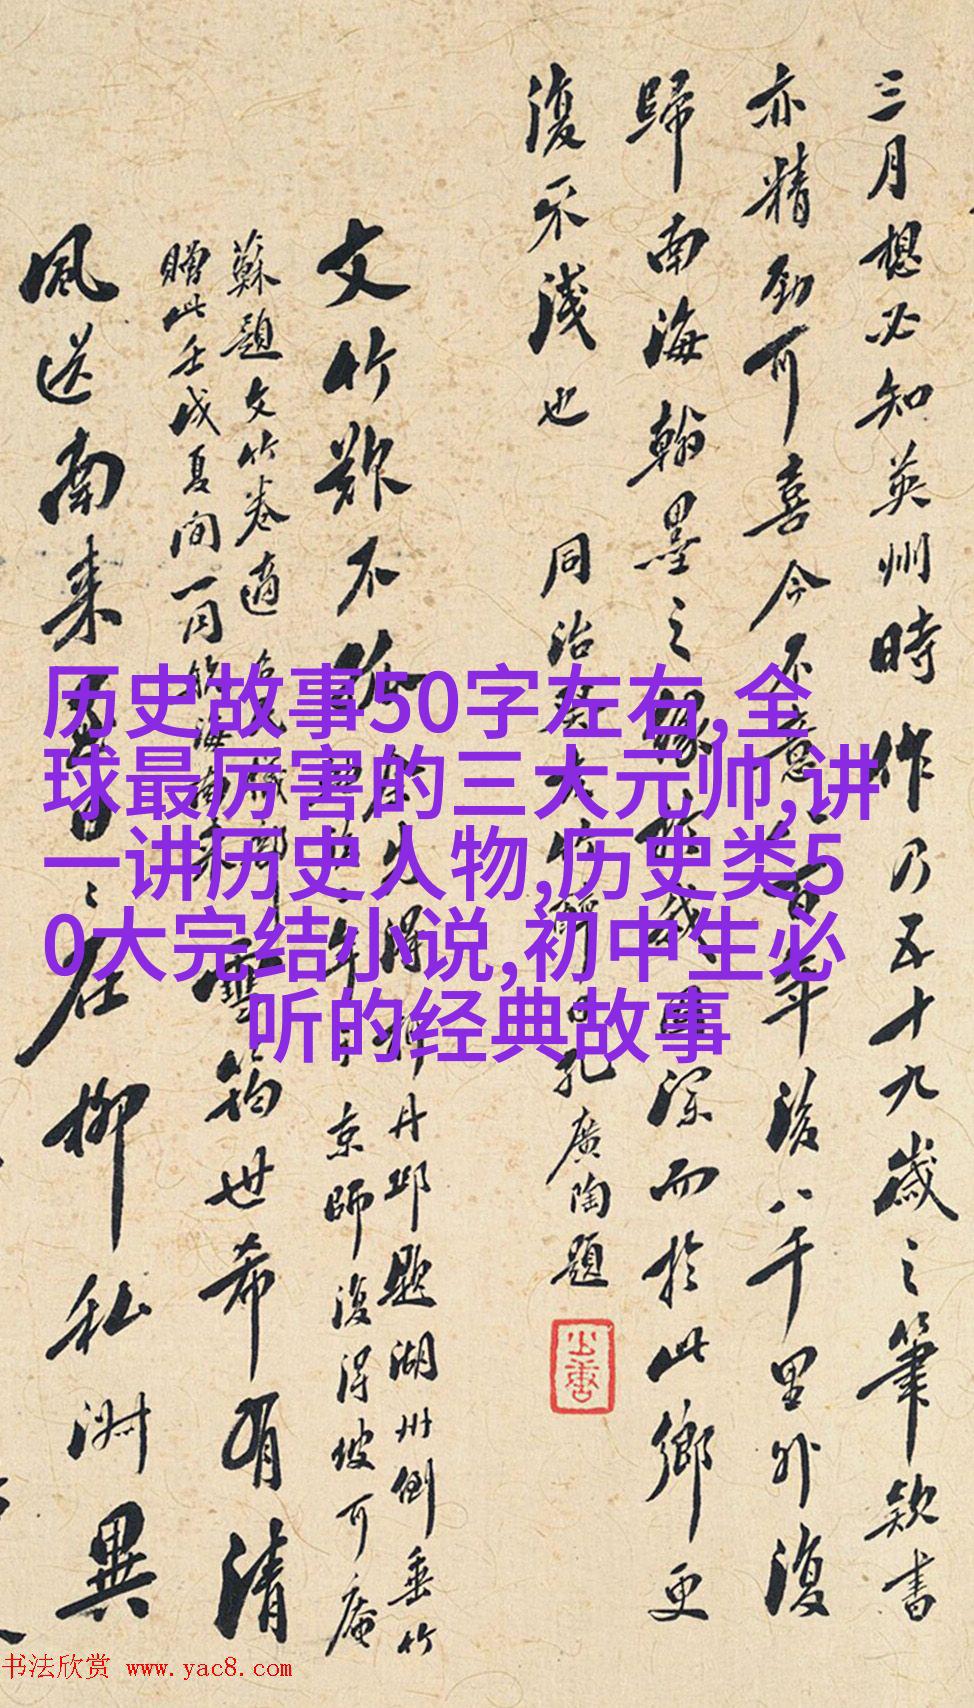 三月想必知英州時作乃五十九歲之筆欵書
亦精勁可喜今不意百年後八千里外復
歸南海翰墨之緣深而於此鄉更
復不淺也 同治孔廣陶題
文竹
丹邱題湖州倒垂竹
京師復得坡可庵
蘇題文竹卷適
贈此壬戌夏間一同
雪筠世希有清
風送南来在柳私淑異
历史故事50字左右,全
球最厉害的三大元帅,讲
一讲历史人物,历史类5
0大完结小说,初中生必
听的经典故事
书法欣赏 www.yac8.com